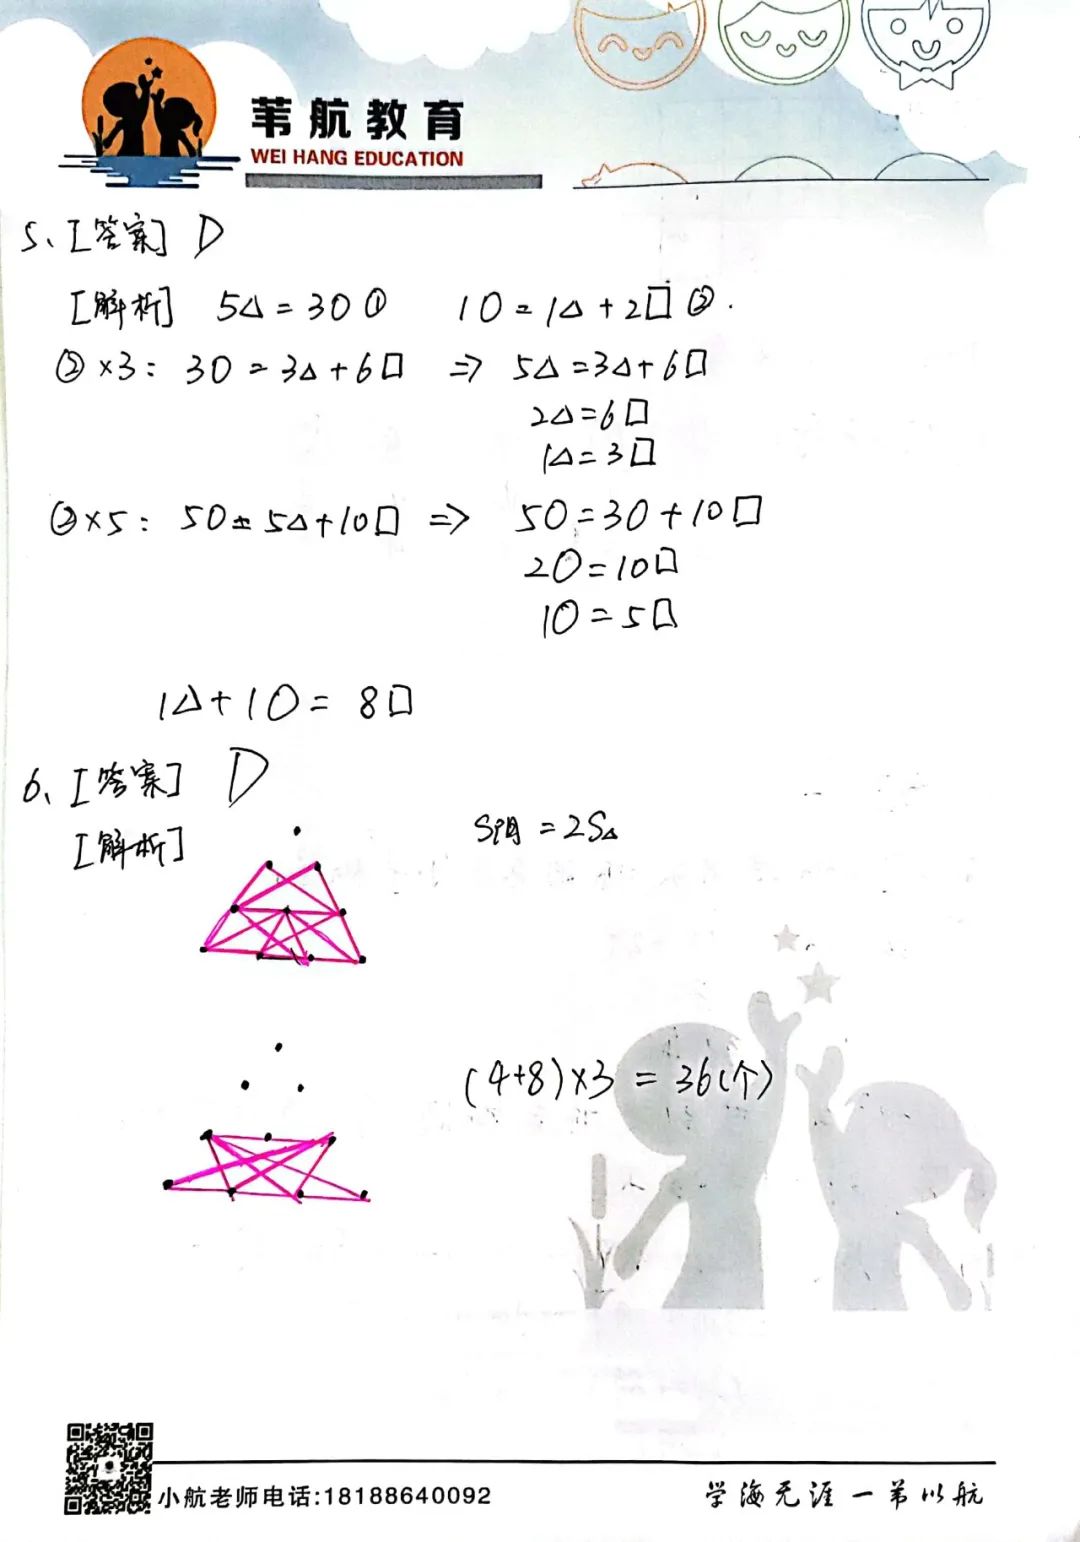 苇航教育
WEI HANG EDUCATION
5、[答案] D
[解析] 5△=3○① 1○=1△+2□②.
②×3: 3○=3△+6□ ⇒ 5△=3△+6□
2△=6□
1△=3□
②×5: 5○=5△+10□ ⇒ 5○=3○+10□
2○=10□
1○=5□
1△+1○=8□
6、[答案] D
[解析]
S阴=2S△
(4+8)×3=36(个)
小航老师电话:18188640092
学海无涯一苇以航